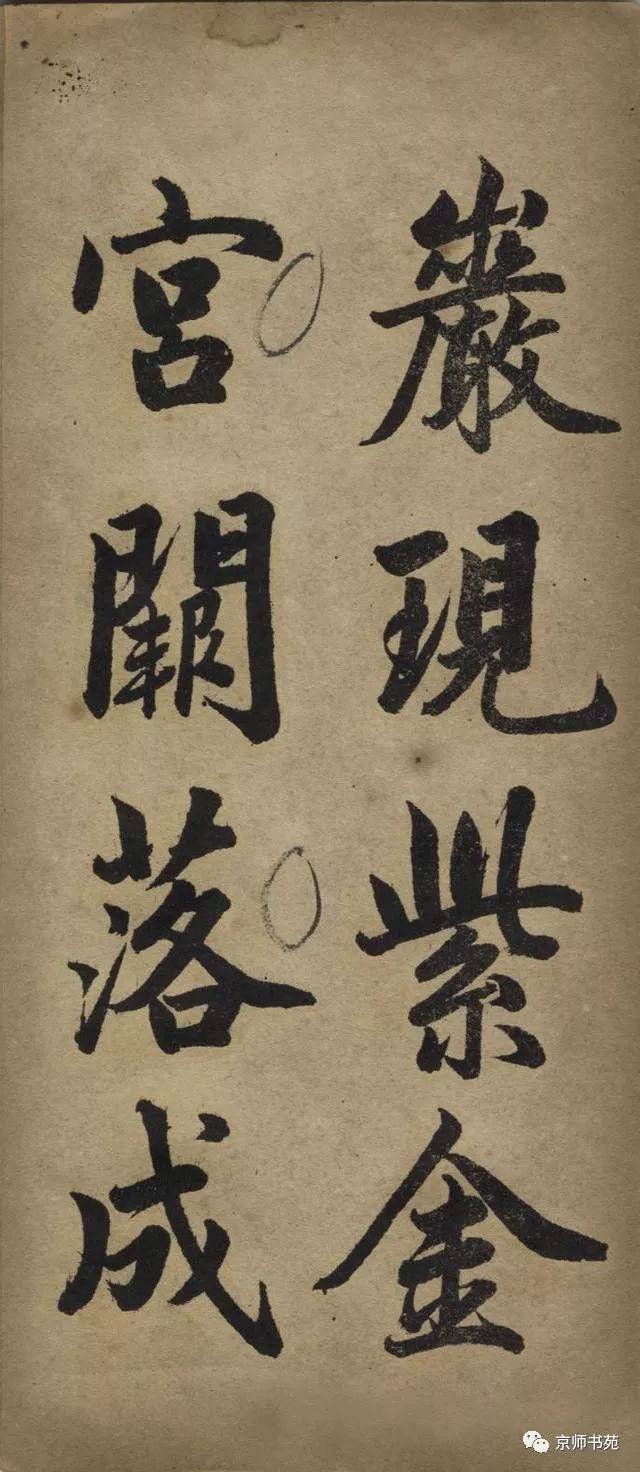 巖現紫金
宮闕落成
京师书苑